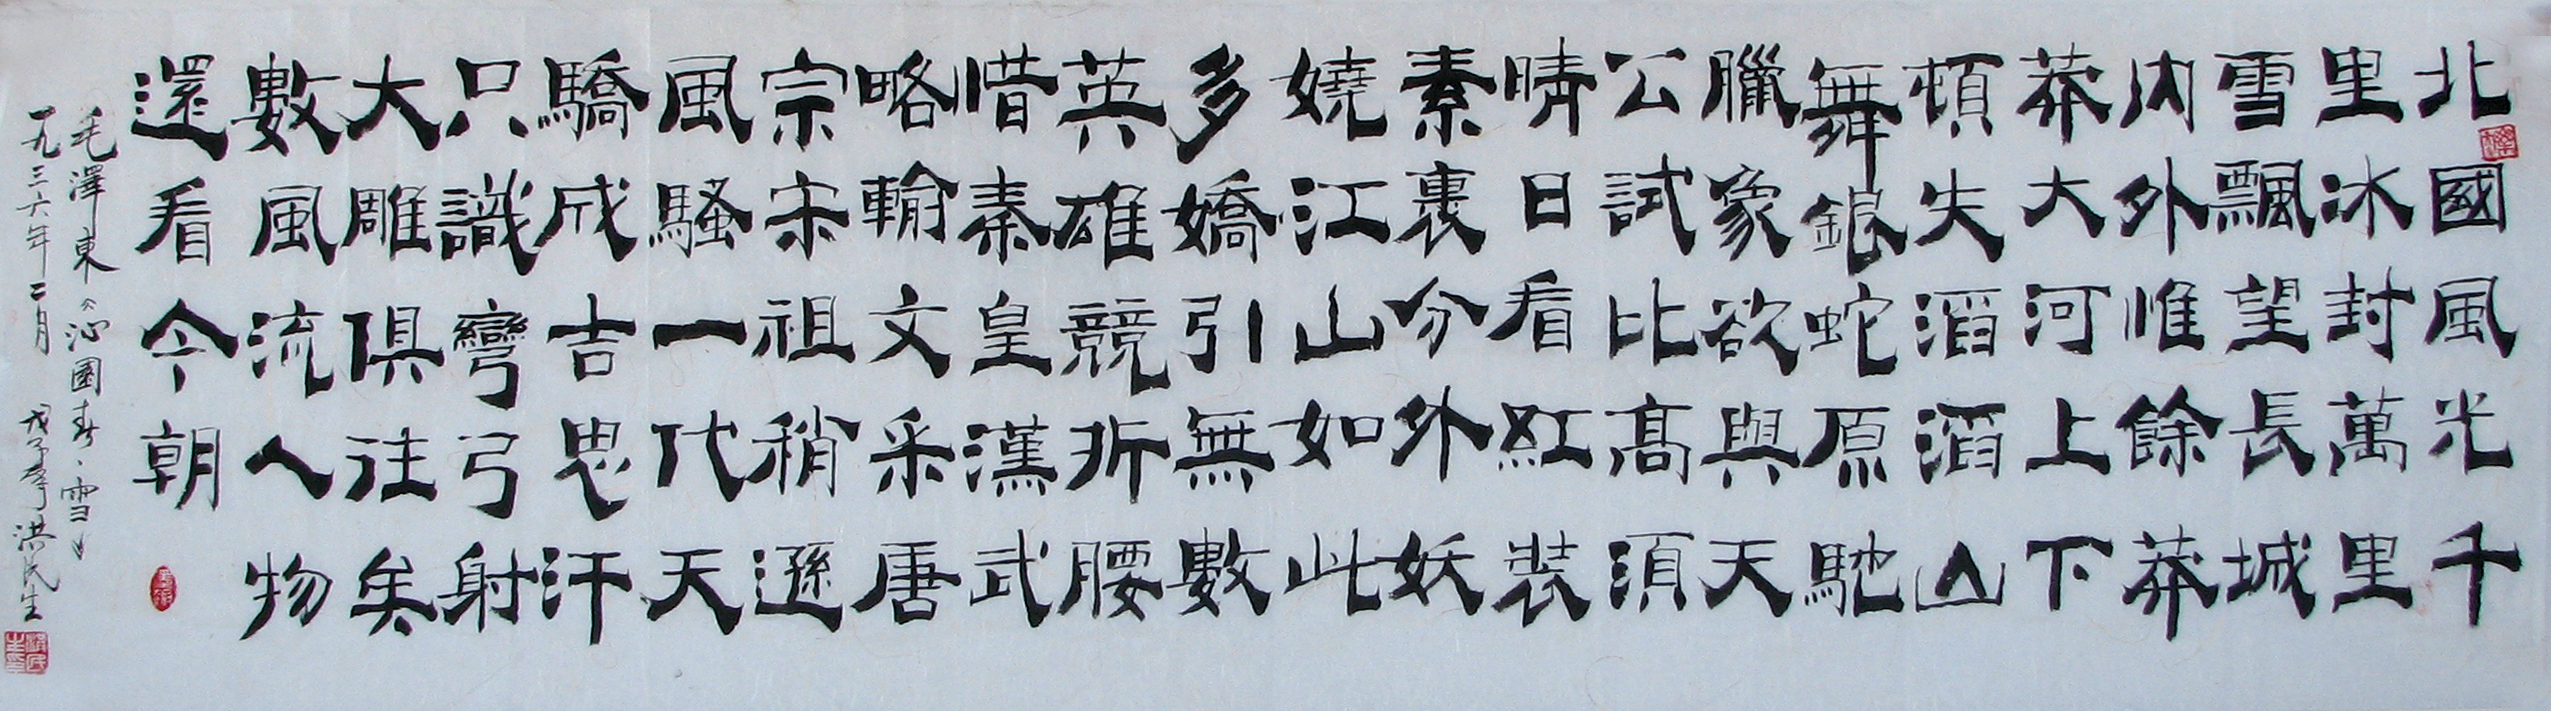 北國風光千
里冰封萬里
雪飄望長城
内外惟餘莽
莽大河上下
頓失滔滔山
舞銀蛇原馳
臘象欲與天
公試比髙須
晴日看紅裝
素裹分外妖
嬈江山如此
多嬌引無數
英雄競折腰
惜秦皇漢武
略輸文采唐
宗宋祖稍遜
風騷一代天
驕成吉思汗
只識彎弓射
大雕俱往矣
數風流人物
還看今朝
毛澤東《沁園春、雪》
一九三六年二月 戊子 洪民生